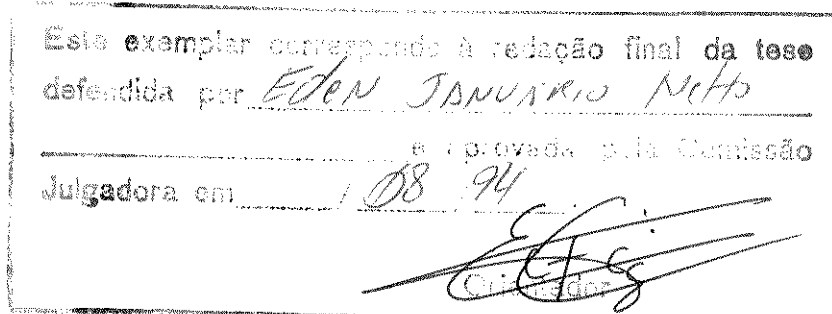 Este exemplar corresponde à redação final da tese
defendida por Eden JANUÁRIO Netto
e aprovada pela Comissão
Julgadora em / 08 94
Orientador